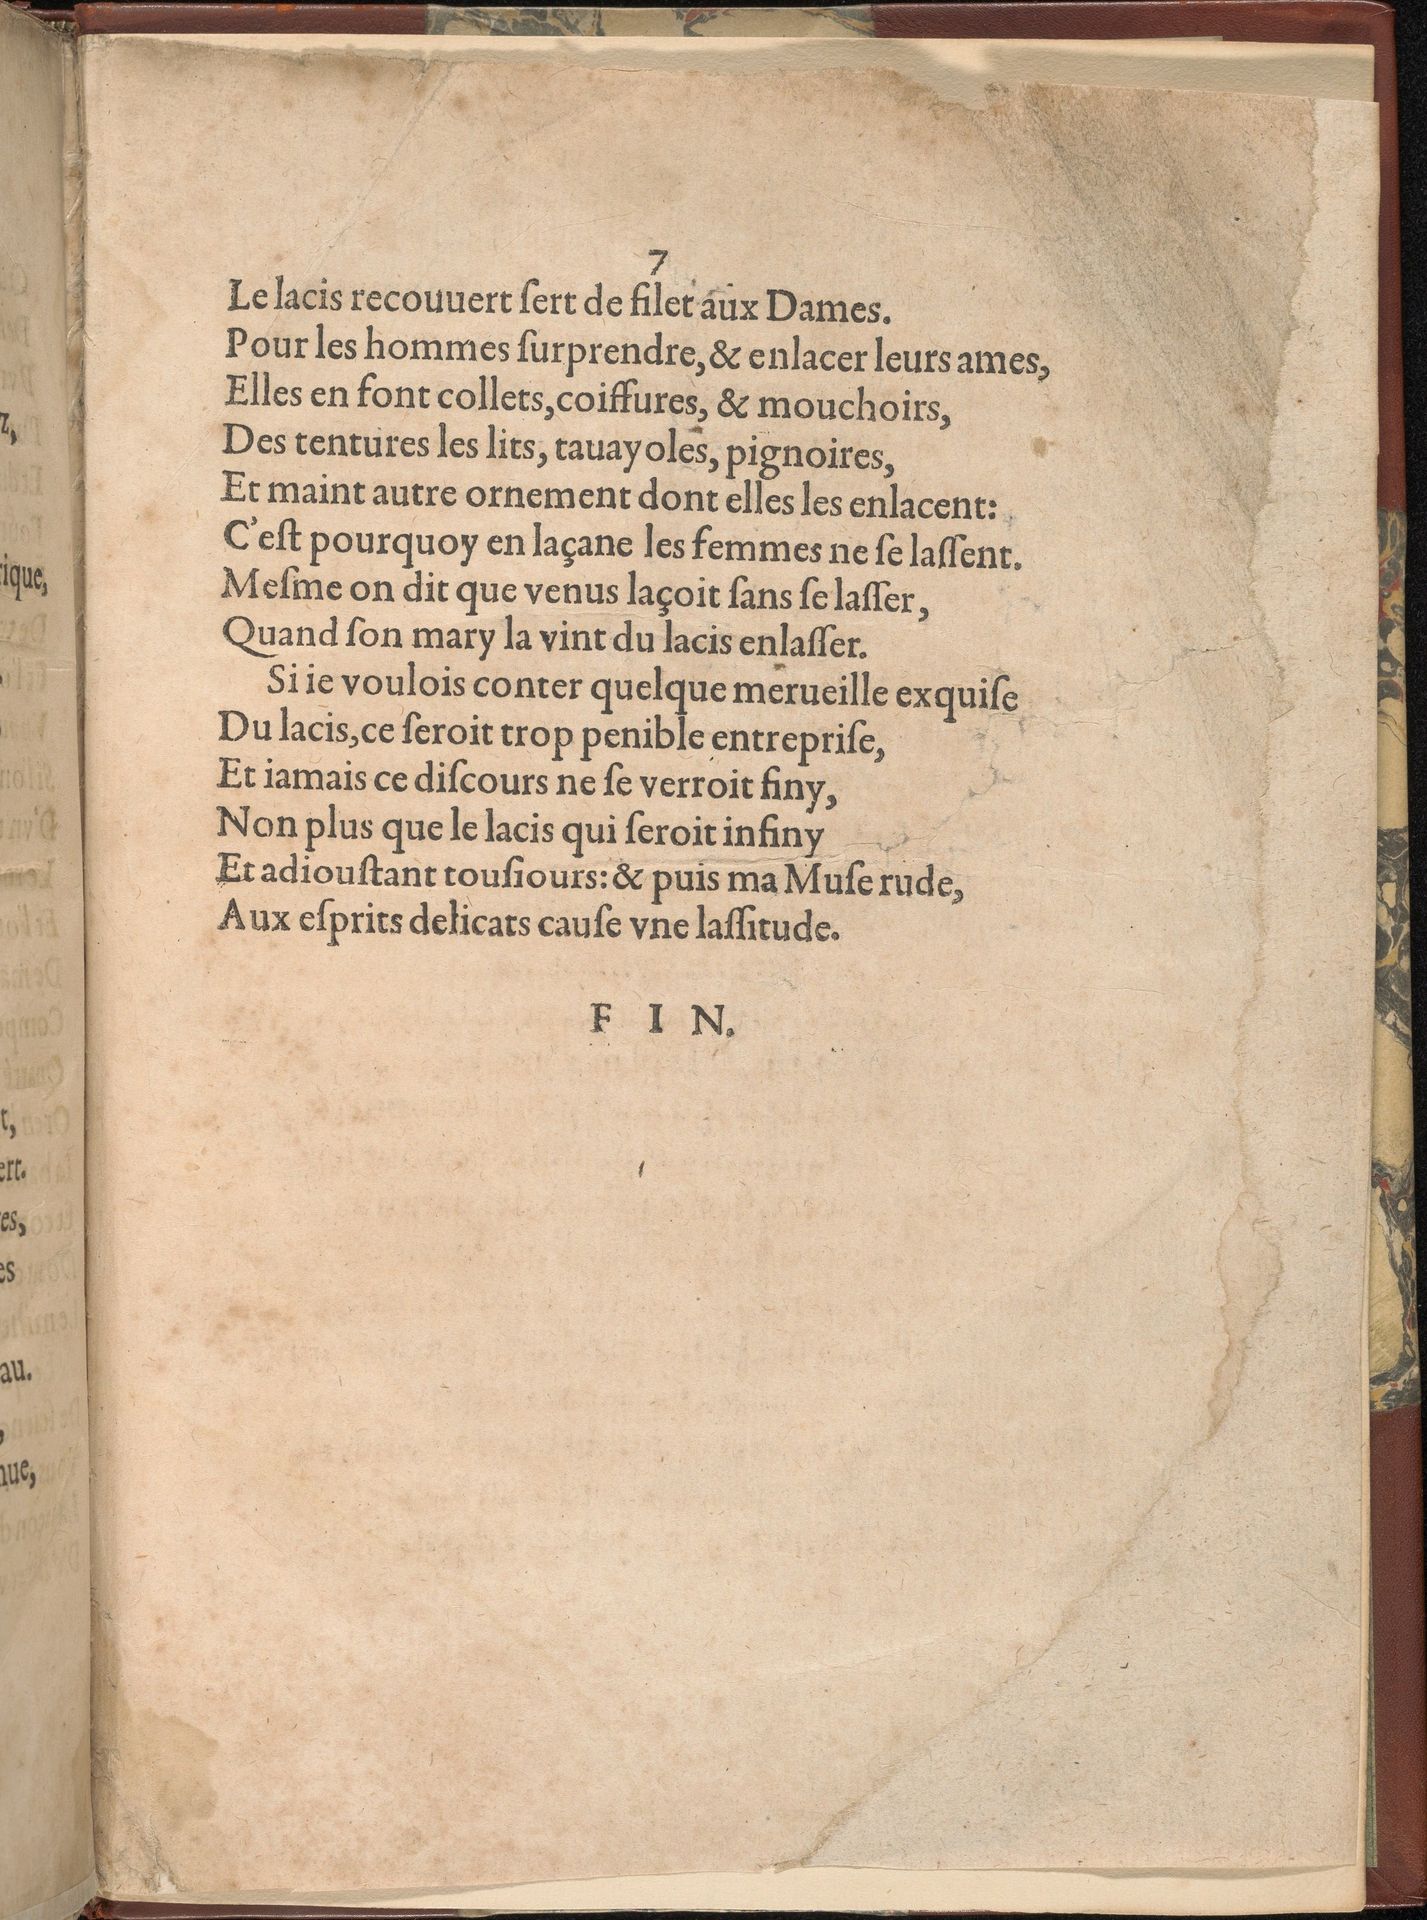 7
Le lacis recouuert ſert de filet aux Dames.
Pour les hommes ſurprendre, & enlacer leurs ames,
Elles en font collets, coiffures, & mouchoirs,
Des tentures les lits, tauayoles, pignoires,
Et maint autre ornement dont elles les enlacent:
C'eſt pourquoy en laçane les femmes ne ſe laſſent.
Meſme on dit que venus laçoit ſans ſe laſſer,
Quand ſon mary la vint du lacis enlaſſer.
Si ie voulois conter quelque merueille exquiſe
Du lacis, ce ſeroit trop penible entrepriſe,
Et iamais ce diſcours ne ſe verroit finy,
Non plus que le lacis qui ſeroit infiny
Et adiouſtant touſiours: & puis ma Muſe rude,
Aux eſprits delicats cauſe vne laſſitude.
FIN.